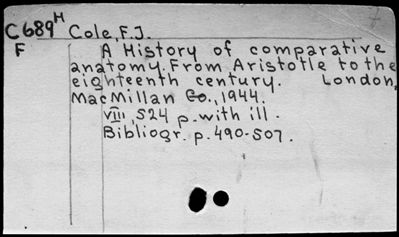 C689H Cole, F.J.
F A History of comparative
anatomy. From Aristotle to the
eighteenth century. London,
MacMillan Co., 1944.
VIII, 524 p. with ill.
Bibliogr. p. 490-507.